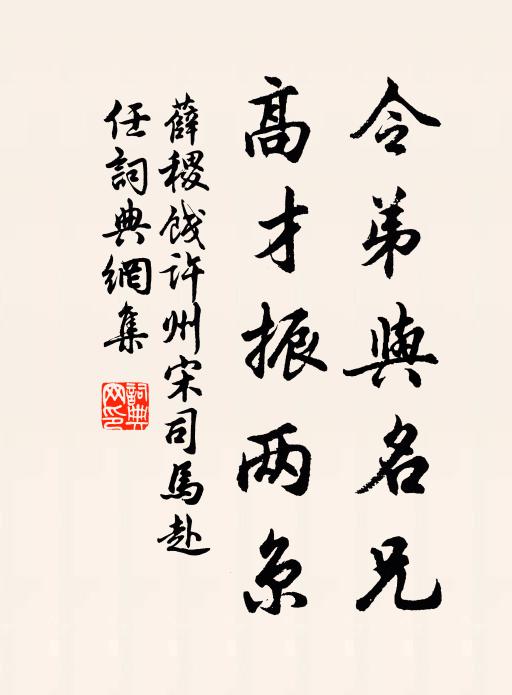 令弟與名兄
高才振两京
薛稷餞许州宋司馬赴
任詞典網集
詞典網印